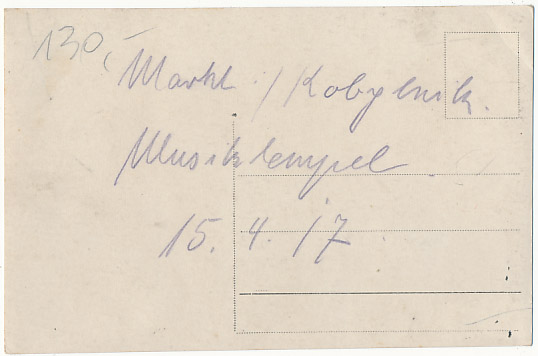 130,-
Markt i/Kobylnik.
Musiktempel
15. 4. 17